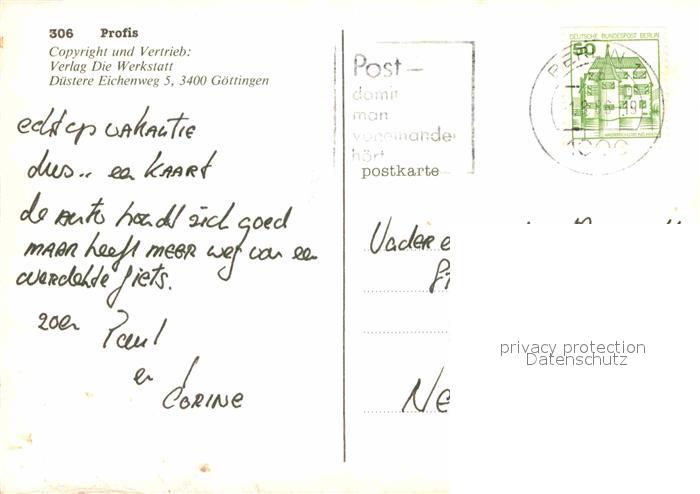 306 Profis
Copyright und Vertrieb:
Verlag Die Werkstatt
Düstere Eichenweg 5, 3400 Göttingen
echt op vakantie
dus.. een KAART
de auto houdt zich goed
MAAR heeft MEER weg van een
overdekte fiets.
zoen
Paul
en
CORINE
Post –
damit
man
voneinander
hört
postkarte
DEUTSCHE BUNDESPOST BERLIN
50
BER
1000
Vader e
Ne
privacy protection
Datenschutz